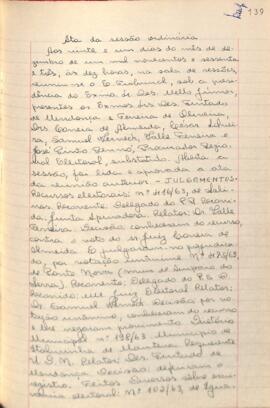 139
Ata da sessão ordinária
Aos vinte e um dias do mês de de-
zembro de um mil novecentos e sessenta
e três, às dez horas, na sala de sessões,
reuniu-se o E. Tribunal, sob a presi-
dência do Exmo. Sr. Des. Mello
presentes os Exmos. Srs. Des. Furtado
de Mendonça e Ferreira de Oliveira,
Drs. Correia de Almeida,
Valle Ferreira e
José Procurador Regio-
nal Eleitoral, substituto. Aberta a
sessão, foi lida e aprovada a ata
da reunião anterior - JULGAMENTOS -
Recursos eleitorais: nº 116/63, de Sali-
nas. Recorrente: Delegado do P.R. Recorri-
da: Junta Apuradora. Relator: Dr. Valle
Ferreira. Decisão: conheceram do recurso,
contra o voto do Juiz Correia de
Almeida. E julgaram-no prejudica-
do, por votação unânime. Nº
de Ponte Nova
Serra). Recorrente: Delegado do P.S.D.
Recorrido: MM. Juiz Eleitoral. Relator:
Dr. Decisão: por vo-
tação unânime, conheceram do recurso
e lhe negaram provimento. Diretório
Municipal nº 198/63. Município de
de Mantena. Requerente:
U.D.N. Relator: Des. Furtado de
Mendonça. Decisão: deferiram o
registro. Feitos diversos sôbre
eleitoral: Nº 102/63, de